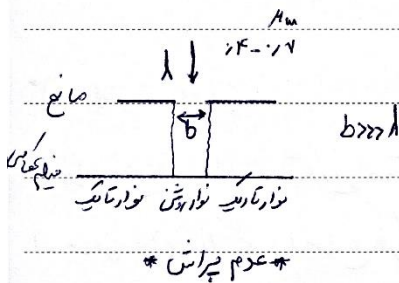 μm
λ ۰٫۴-۰٫۷
مانع
b
b>>>λ
فیلم عکاسی
نوار تاریک نوار روشن نوار تاریک
* عدم پراش *